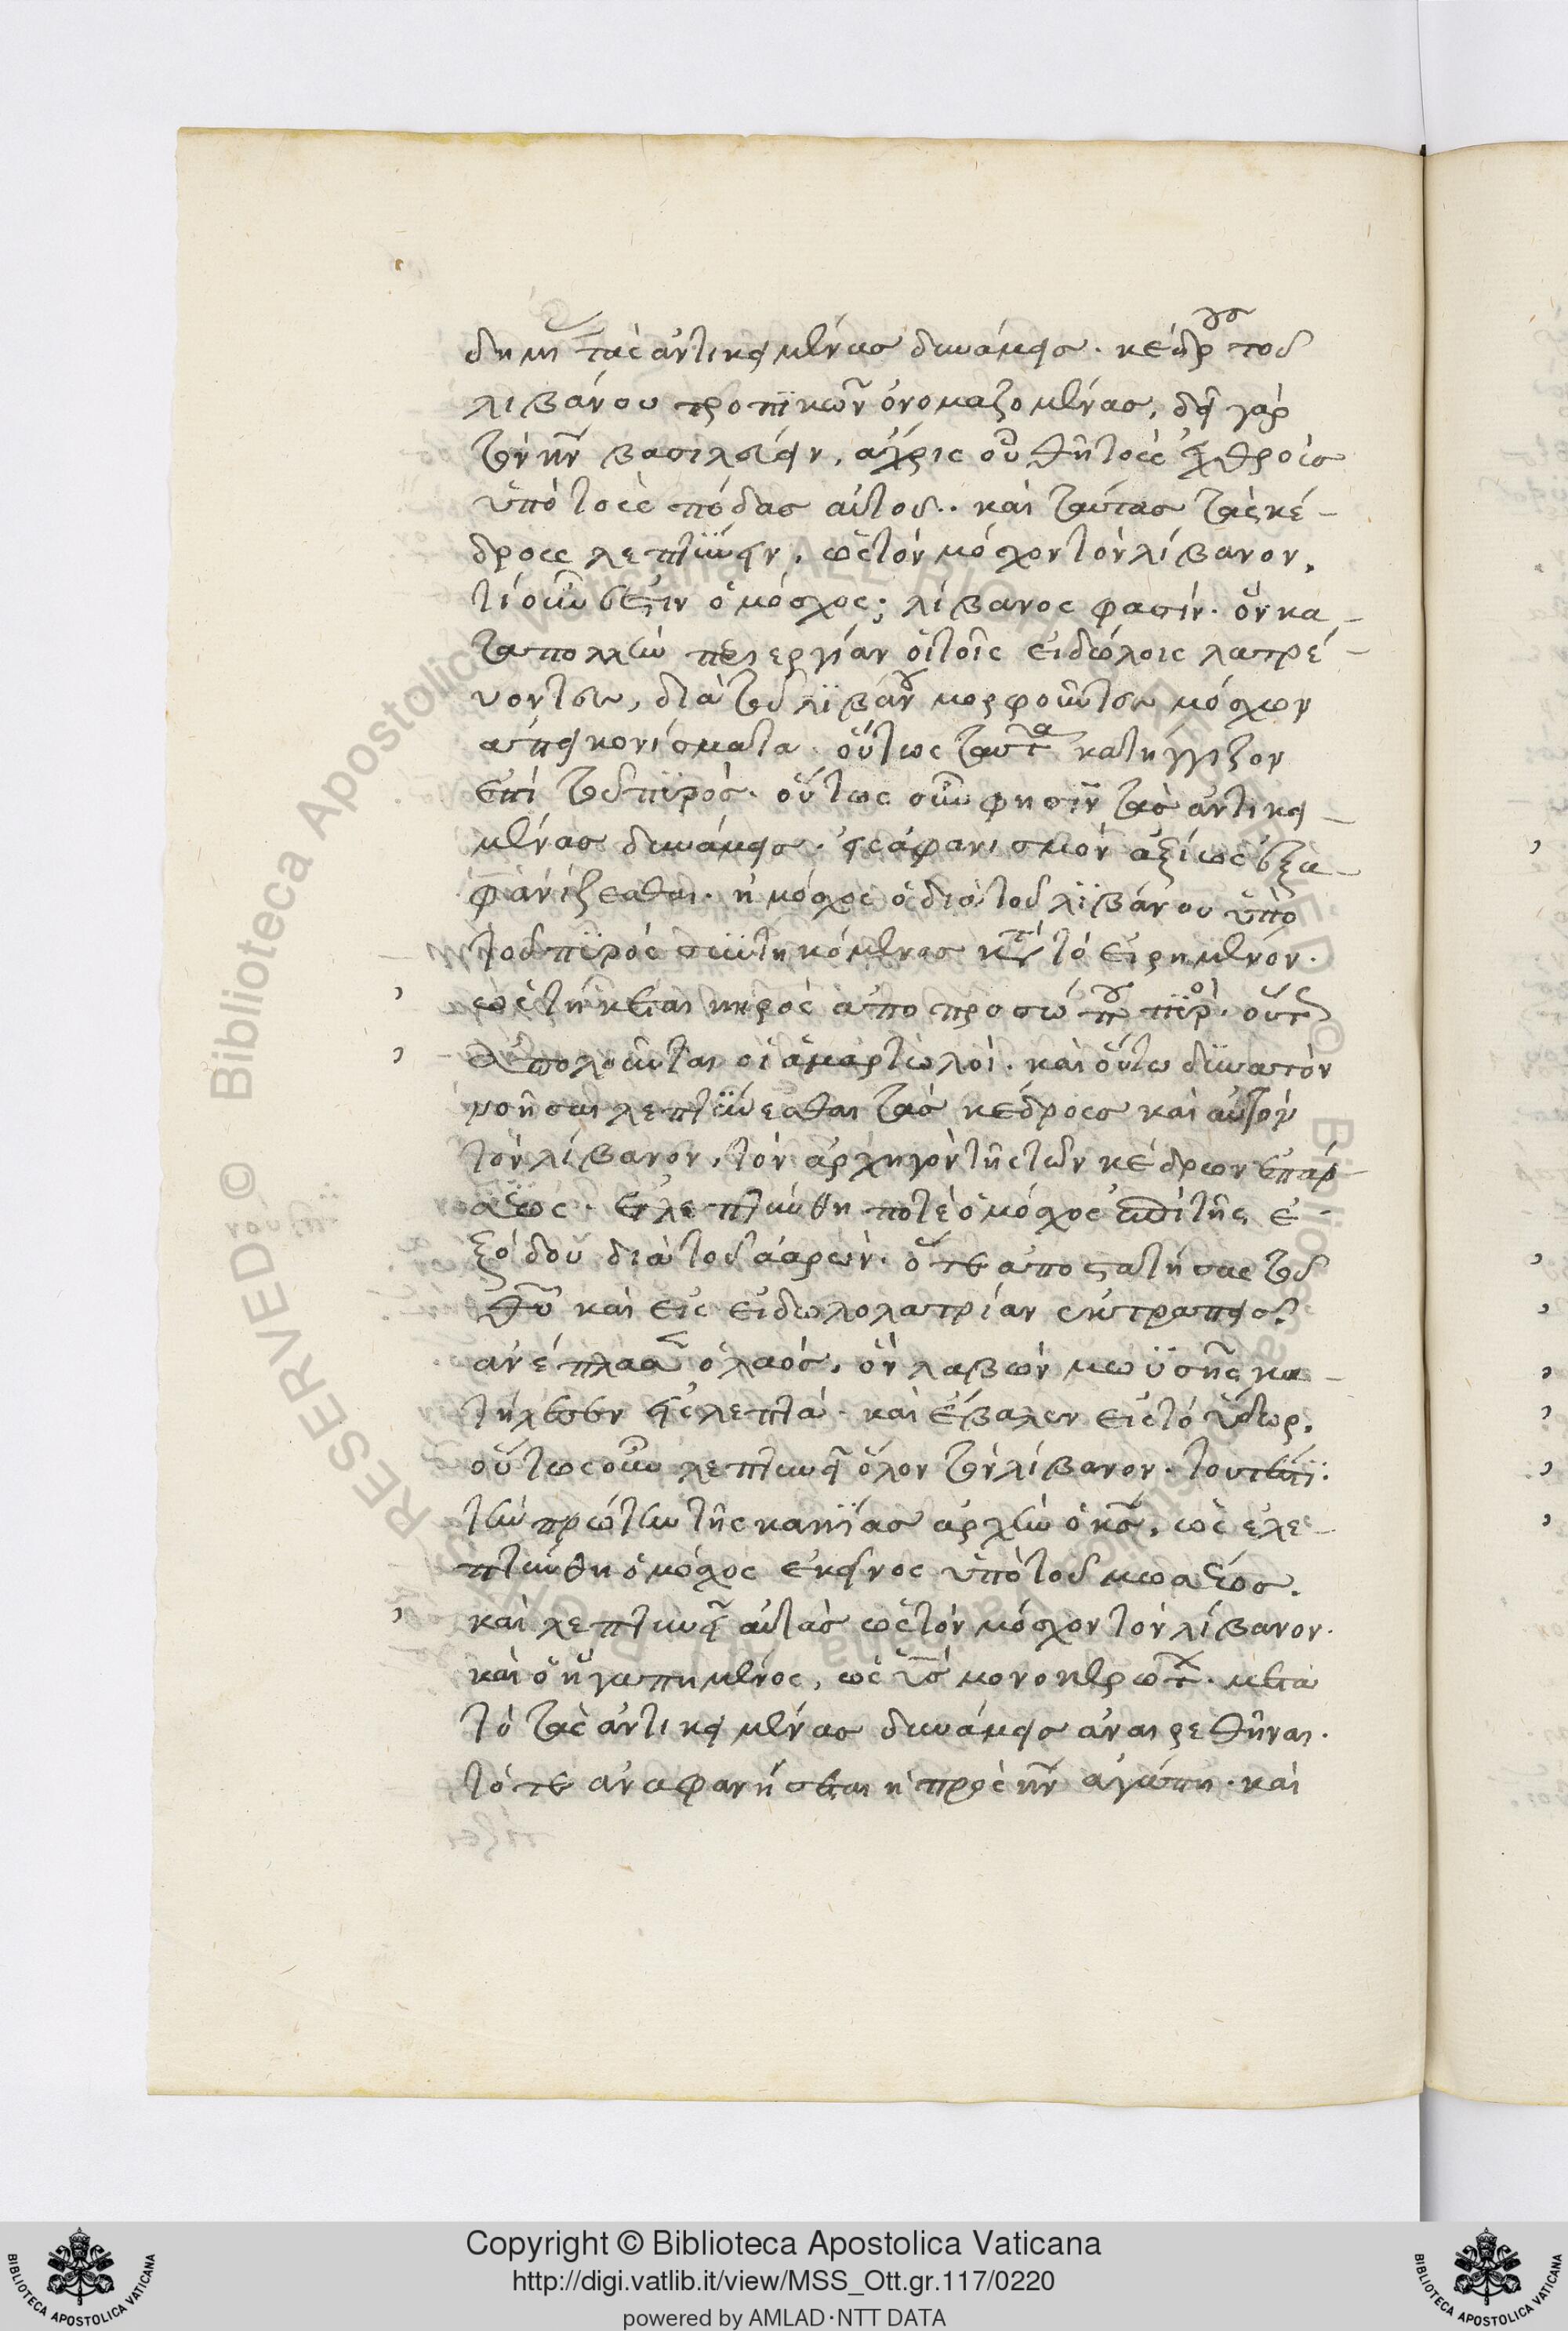 δημῆ τὰς ἀντικειμένας δυνάμεις. κέδρους τοῦ
λιβάνου τροπικῶς ὀνομαζομένας, δεῖ γὰρ
τὸν κν βασιλεύειν, ἄχρις οὗ θῇ τοὺς ἐχθροὺς
ὑπὸ τοὺς πόδας αὐτοῦ. καὶ ταύτας τὰς κέ-
δρους λεπτύνειν, ὡς τὸν μόσχον τὸν λίβανον.
τί οὖν ἐστιν ὁ μόσχος; λίβανος φασίν. ὃν κα-
τα πολλὴν περιεργίαν οἱ τοῖς εἰδώλοις λατρεύ-
οντες, διὰ τοῦ λιβάνου μορφοῦντες μόσχων
ἀπεικονίσματα. οὕτως ταῦτα κατήγγιζον
ἐπὶ τοῦ πυρός. οὕτως οὖν φησὶν τὰς ἀντικει-
μένας δυνάμεις. εἰς ἀφανισμὸν ἀξίως ἐξα-
φανίζεσθαι. ἢ μόσχος ὁ διὰ τοῦ λιβάνου ὑπὸ
τοῦ πυρὸς συντηκόμενος κατὰ τὸ εἰρημένον.
ὡς τήκεται κηρὸς ἀπὸ προσώπου πυρός. οὕτως
ἀπολοῦνται οἱ ἁμαρτωλοί. καὶ οὕτω δυνατὸν
νοῆσαι λεπτύνεσθαι τὰς κέδρους καὶ αὐτὸν
τὸν λίβανον, τὸν ἀρχηγὸν τῆς τῶν κέδρων ἐπάρ-
σεως. ἐλεπτύνθη ποτὲ ὁ μόσχος ἐπὶ τῆς ἐ-
ξόδου διὰ τοῦ ἀαρών. ὅτε ἀποστατήσας τοῦ
θυ καὶ εἰς εἰδωλολατρίαν ἐκτραπεὶς
ἀνέπλασεν ὁ λαός, ὃν λαβὼν μωϋσῆς κα-
τήλεσεν εἰς λεπτά. καὶ ἔβαλεν εἰς τὸ ὕδωρ.
οὕτως οὖν λεπτυνεῖ ὅλον τὸν λίβανον. τουτέστι.
τὴν πρώτην τῆς κακίας ἀρχὴν ὁ κς, ὡς ἐλε-
πτύνθη ὁ μόσχος ἐκεῖνος ὑπὸ τοῦ μωσέως.
καὶ λεπτυνεῖ αὐτὰς ὡς τὸν μόσχον τὸν λίβανον.
καὶ ὁ ἠγαπημένος, ὡς υἱὸς μονοκερώτων. μετὰ
τὸ τὰς ἀντικειμένας δυνάμεις ἀναιρεθῆναι.
τότε ἀναφανήσεται ἡ πρὸς κν ἀγάπη. καὶ